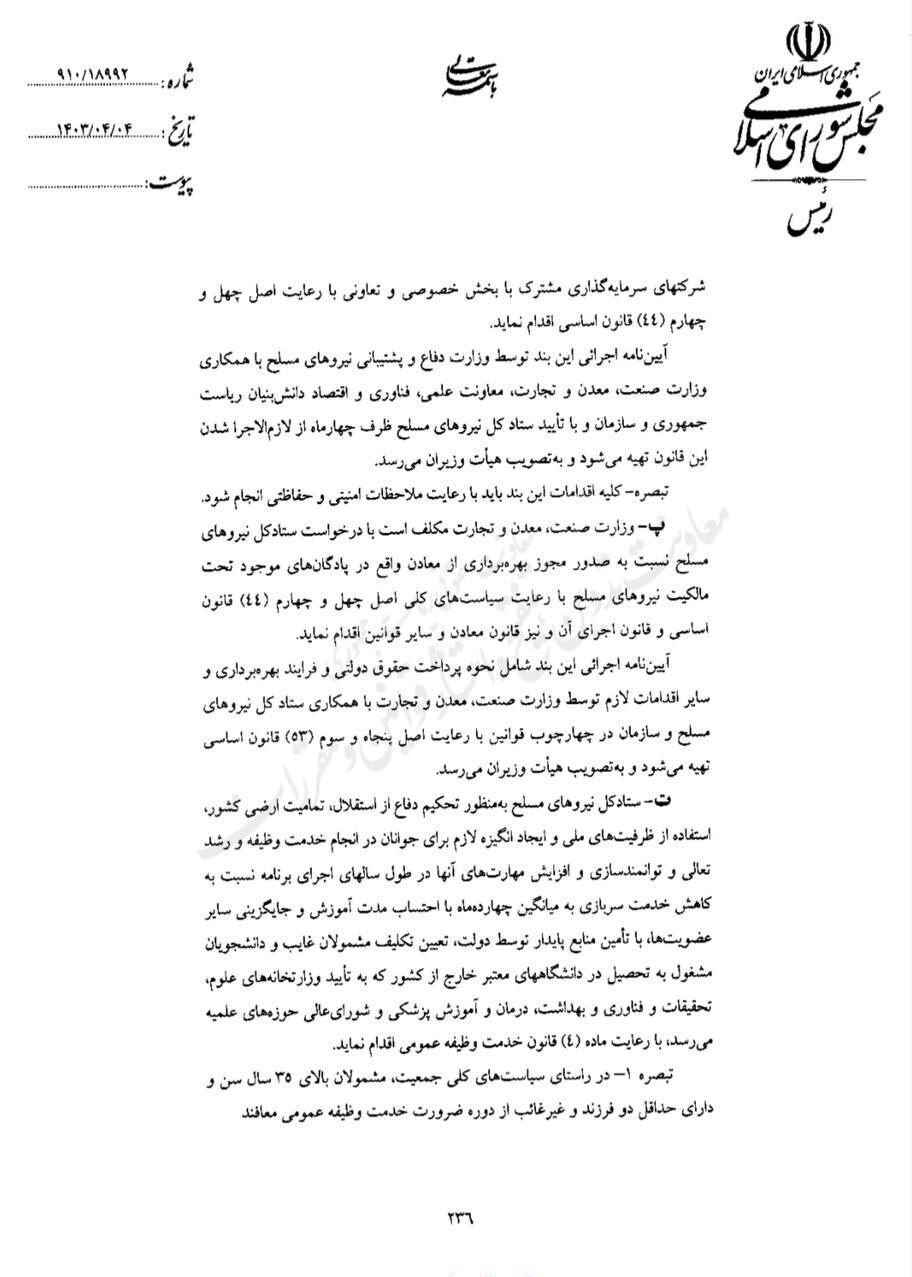 جمهوری اسلامی ایران
مجلس شورای اسلامی
رئیس
باسمه تعالی
شماره: ۹۱۰/۱۸۹۹۲
تاریخ: ۱۴۰۳/۰۴/۰۴
پیوست:
شرکتهای سرمایه‌گذاری مشترک با بخش خصوصی و تعاونی با رعایت اصل چهل و
چهارم (٤٤) قانون اساسی اقدام نماید.
آیین‌نامه اجرائی این بند توسط وزارت دفاع و پشتیبانی نیروهای مسلح با همکاری
وزارت صنعت، معدن و تجارت، معاونت علمی، فناوری و اقتصاد دانش‌بنیان ریاست
جمهوری و سازمان و با تأیید ستاد کل نیروهای مسلح ظرف چهارماه از لازم‌الاجرا شدن
این قانون تهیه می‌شود و به‌تصویب هیأت وزیران می‌رسد.
تبصره- کلیه اقدامات این بند باید با رعایت ملاحظات امنیتی و حفاظتی انجام شود.
پ- وزارت صنعت، معدن و تجارت مکلف است با درخواست ستادکل نیروهای
مسلح نسبت به صدور مجوز بهره‌برداری از معادن واقع در پادگان‌های موجود تحت
مالکیت نیروهای مسلح با رعایت سیاست‌های کلی اصل چهل و چهارم (٤٤) قانون
اساسی و قانون اجرای آن و نیز قانون معادن و سایر قوانین اقدام نماید.
آیین‌نامه اجرائی این بند شامل نحوه پرداخت حقوق دولتی و فرایند بهره‌برداری و
سایر اقدامات لازم توسط وزارت صنعت، معدن و تجارت با همکاری ستاد کل نیروهای
مسلح و سازمان در چهارچوب قوانین با رعایت اصل پنجاه و سوم (٥٣) قانون اساسی
تهیه می‌شود و به‌تصویب هیأت وزیران می‌رسد.
ت- ستادکل نیروهای مسلح به‌منظور تحکیم دفاع از استقلال، تمامیت ارضی کشور،
استفاده از ظرفیت‌های ملی و ایجاد انگیزه لازم برای جوانان در انجام خدمت وظیفه و رشد
تعالی و توانمندسازی و افزایش مهارت‌های آنها در طول سالهای اجرای برنامه نسبت به
کاهش خدمت سربازی به میانگین چهارده‌ماه با احتساب مدت آموزش و جایگزینی سایر
عضویت‌ها، با تأمین منابع پایدار توسط دولت، تعیین تکلیف مشمولان غایب و دانشجویان
مشغول به تحصیل در دانشگاههای معتبر خارج از کشور که به تأیید وزارتخانه‌های علوم،
تحقیقات و فناوری و بهداشت، درمان و آموزش پزشکی و شورای‌عالی حوزه‌های علمیه
می‌رسد، با رعایت ماده (٤) قانون خدمت وظیفه عمومی اقدام نماید.
تبصره ۱- در راستای سیاست‌های کلی جمعیت، مشمولان بالای ۳۵ سال سن و
دارای حداقل دو فرزند و غیرغائب از دوره ضرورت خدمت وظیفه عمومی معافند
۲۳۶